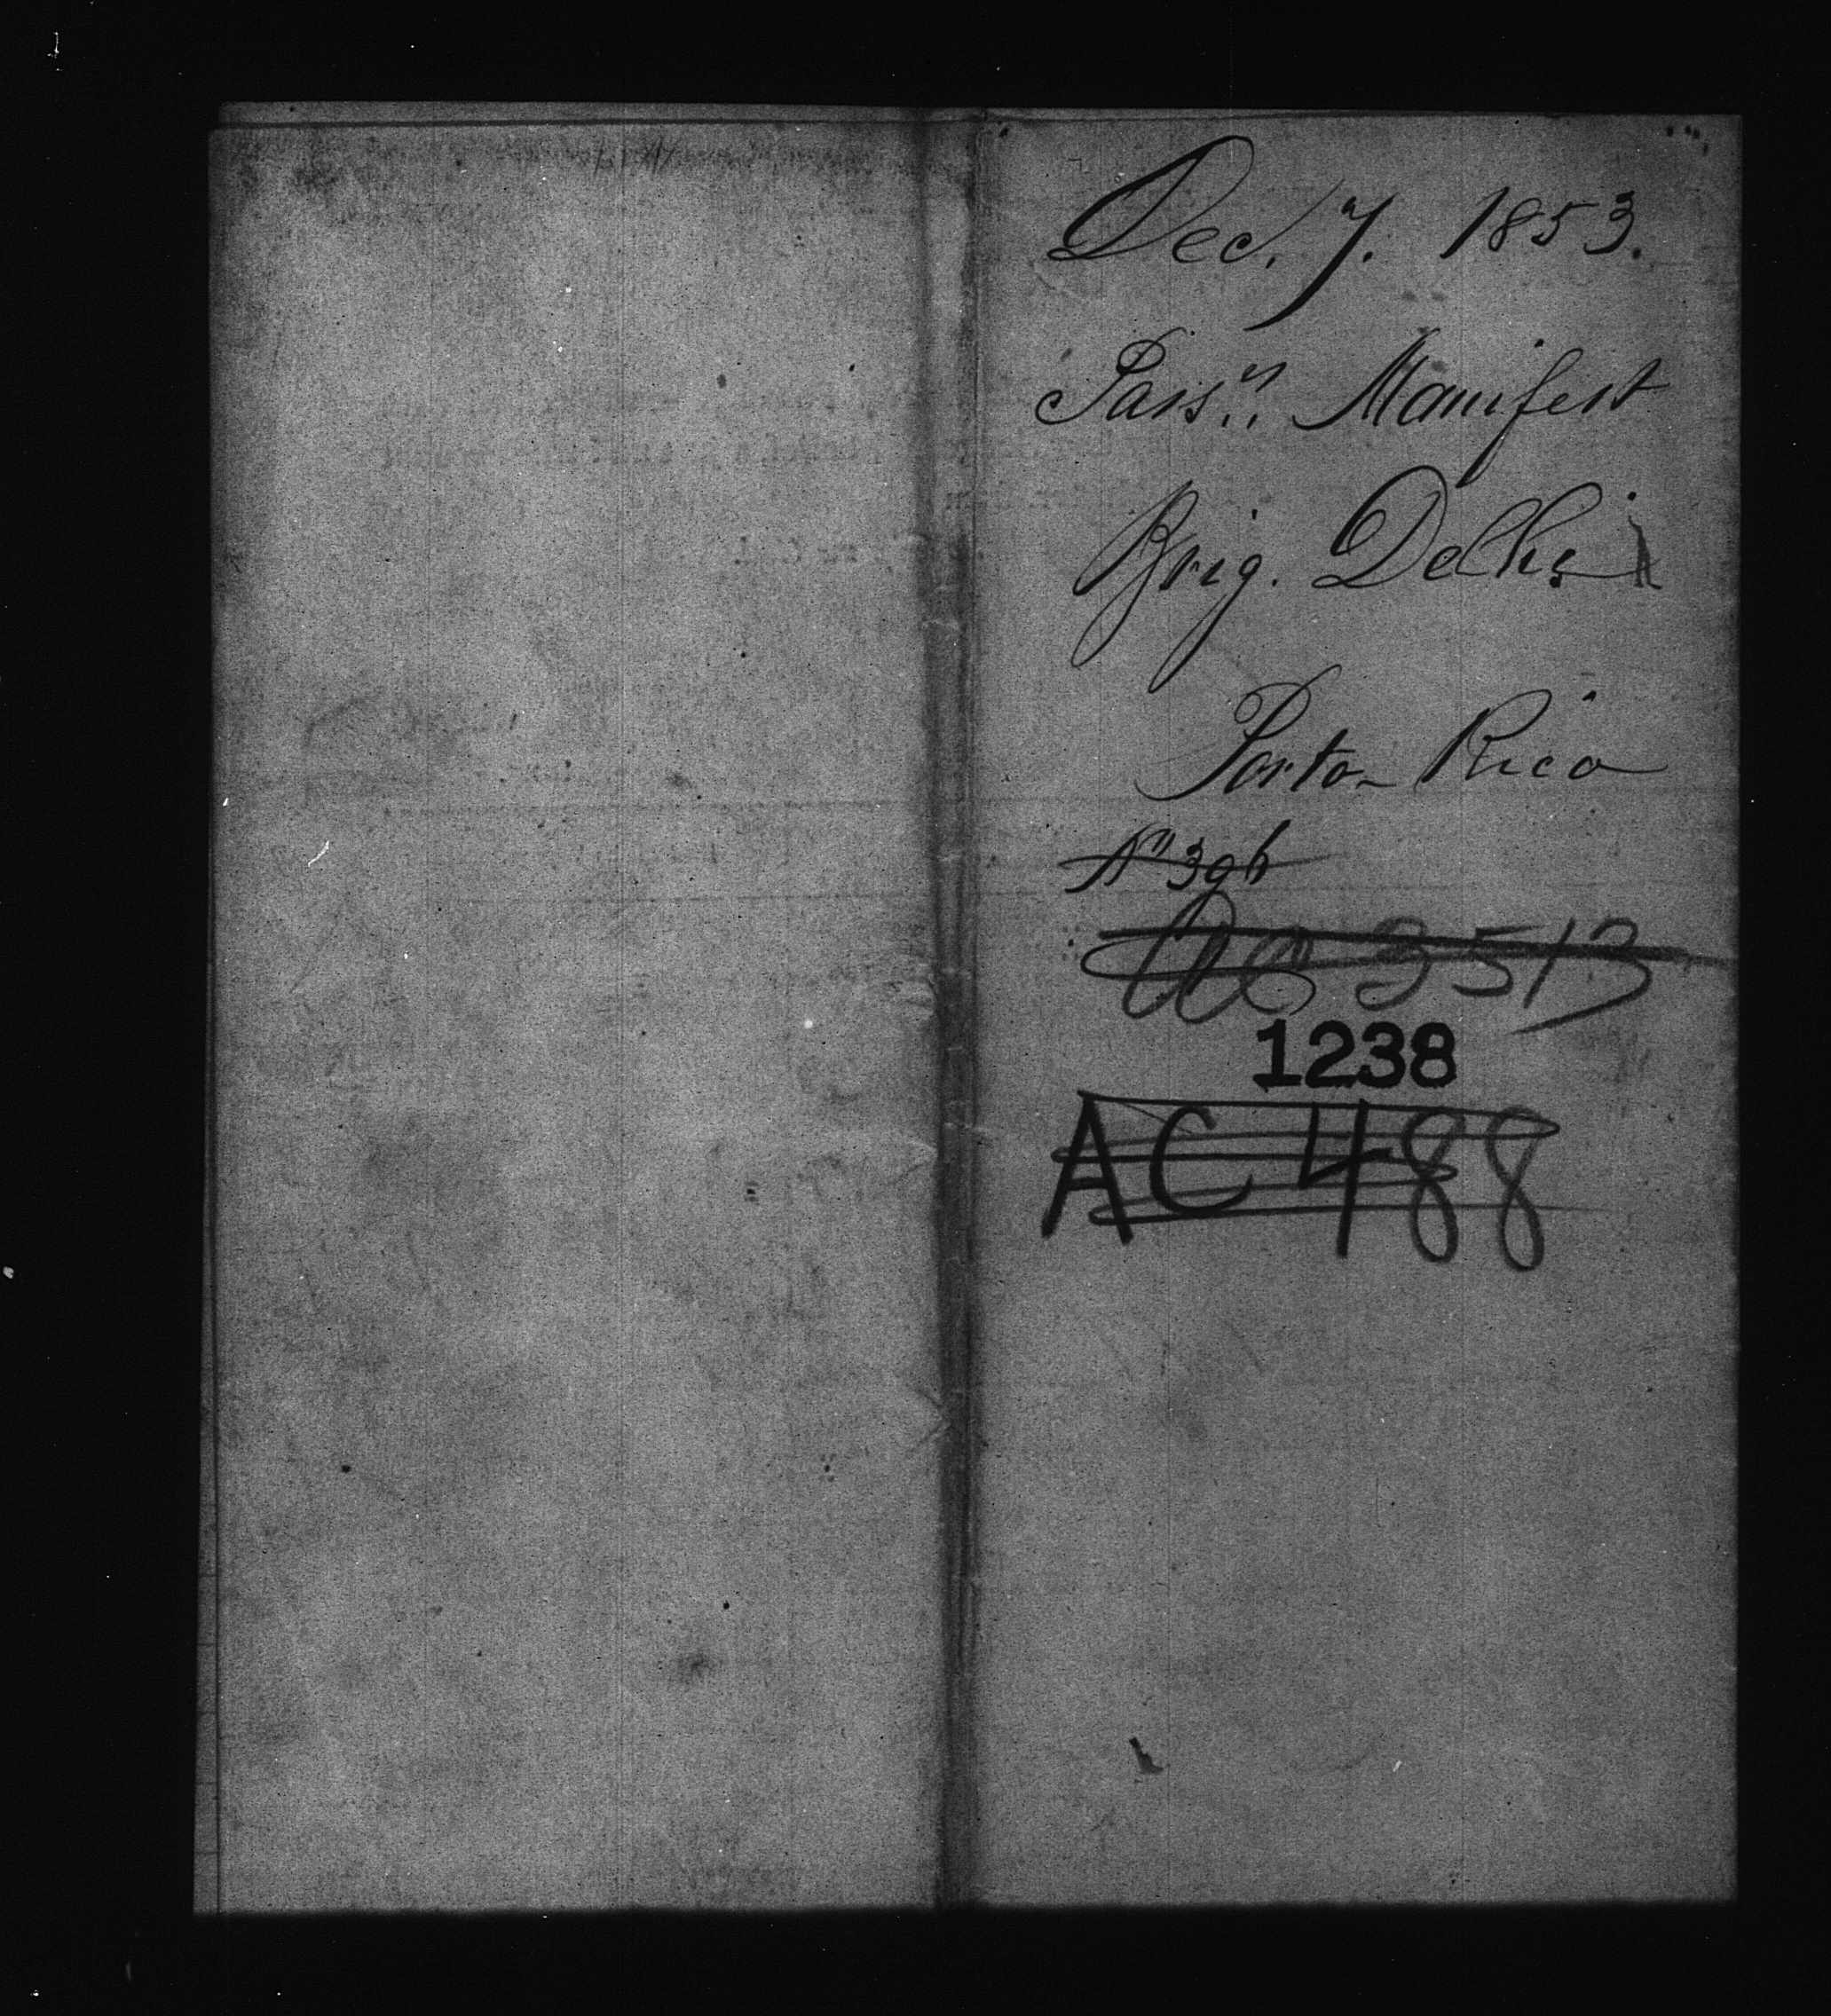 Dec. 7. 1853.
Pass.rs Manifest
Brig. Delhi
Porto Rico
No 396
3513
1238
AC 488